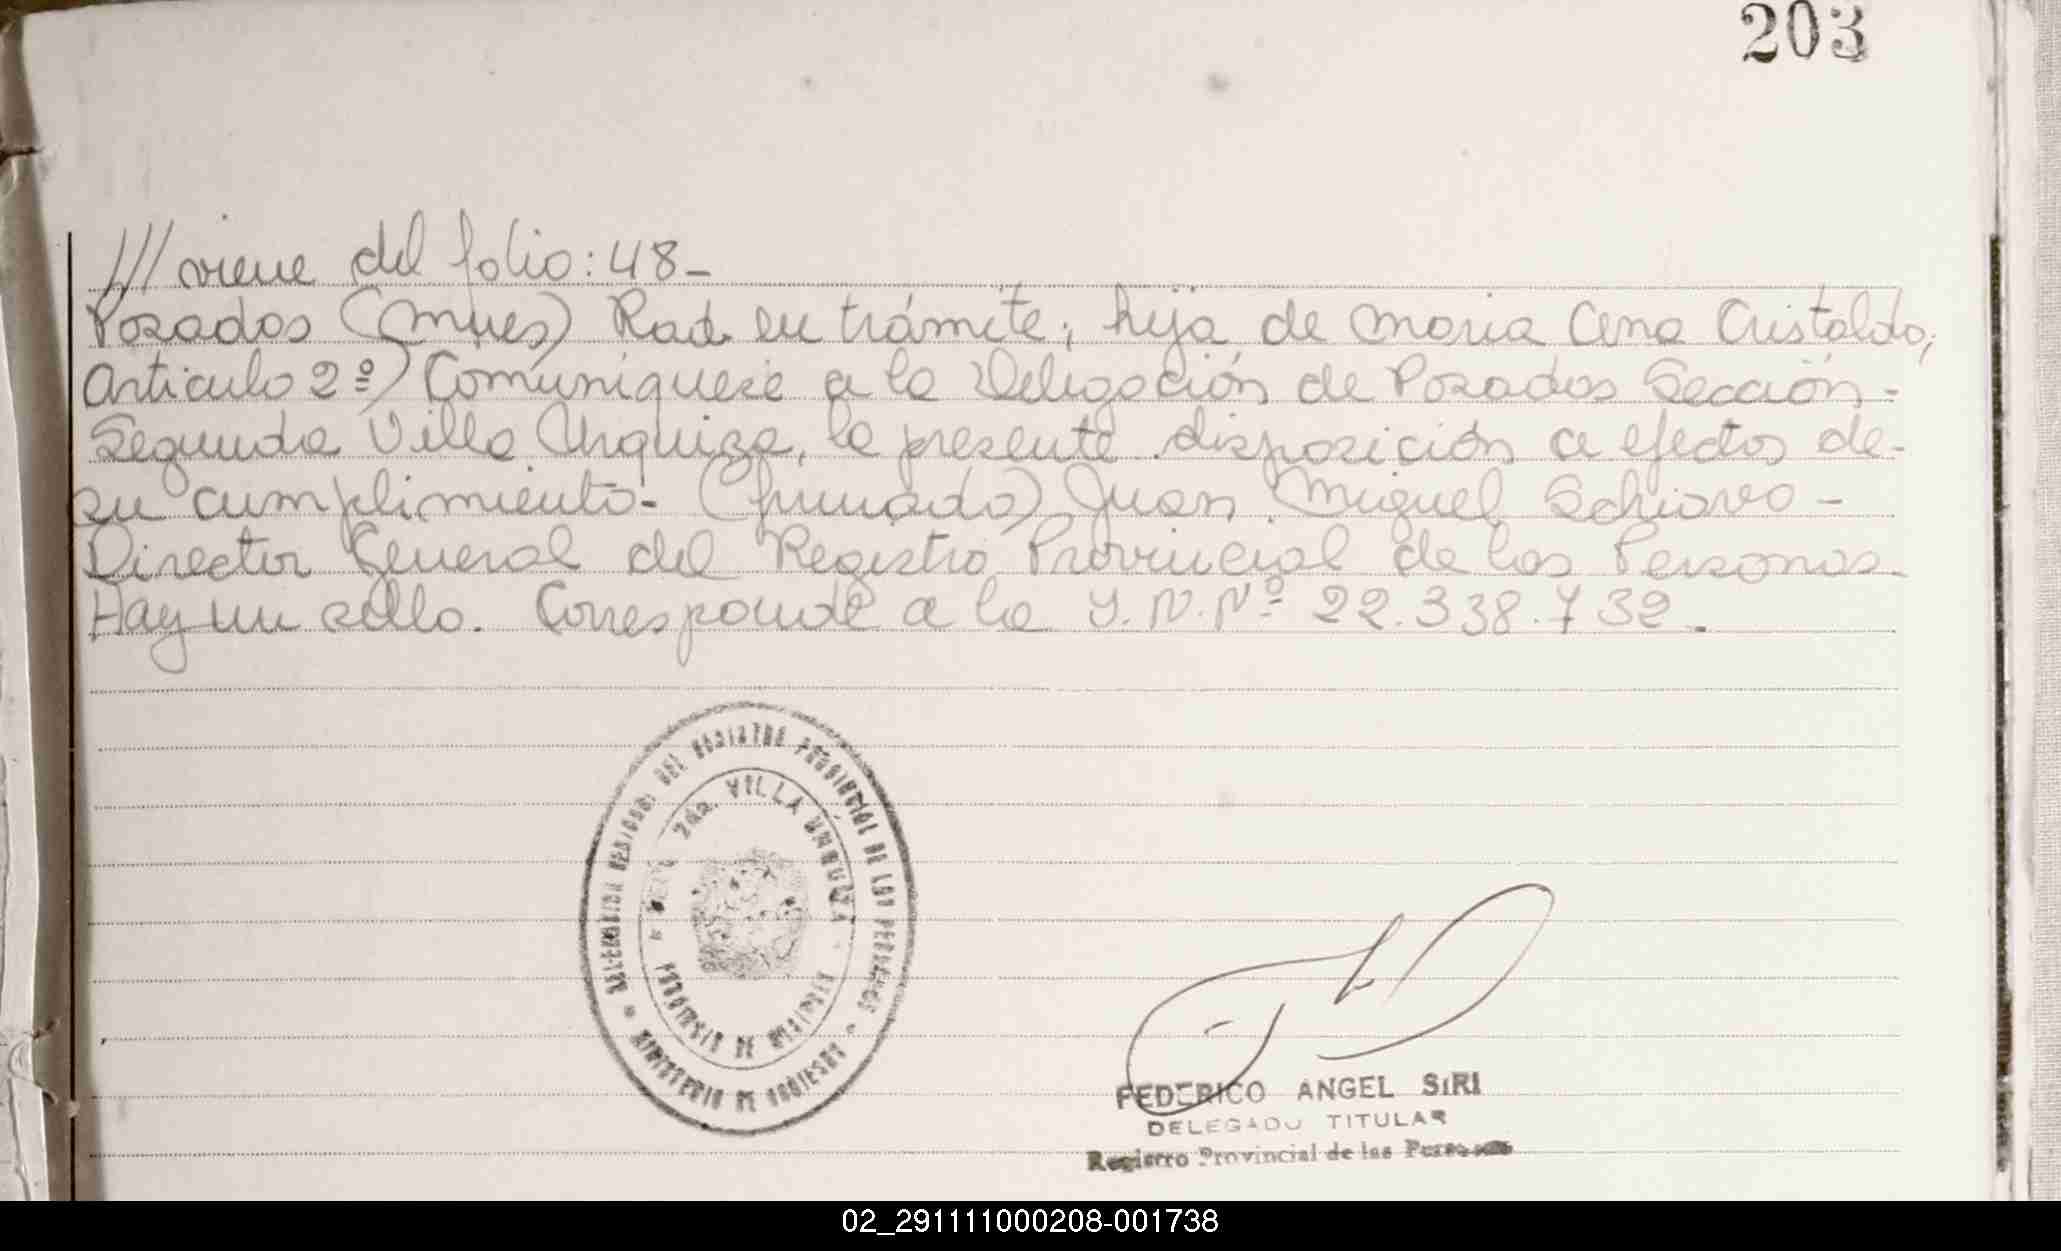 203
/// viene del folio: 48-
Posadas (Mnes) Rad. en trámite; hija de Maria Ana Cristaldo;
Articulo 2º) Comuníquese a la Delegación de Posadas Sección-
Segunda Villa Urquiza, la presente disposición a efectos de-
su cumplimiento- (firmado) Juan Miguel Schiavo-
Director General del Registro Provincial de las Personas-
Hay un sello. Corresponde a la I.N.Nº 22.338.732.
DELEGACION SECCIONAL DEL REGISTRO PROVINCIAL DE LAS PERSONAS
2da. VILLA URQUIZA
PROVINCIA DE MISIONES
MINISTERIO DE GOBIERNO
FEDERICO ANGEL SIRI
DELEGADO TITULAR
Registro Provincial de las Personas
02_291111000208-001738